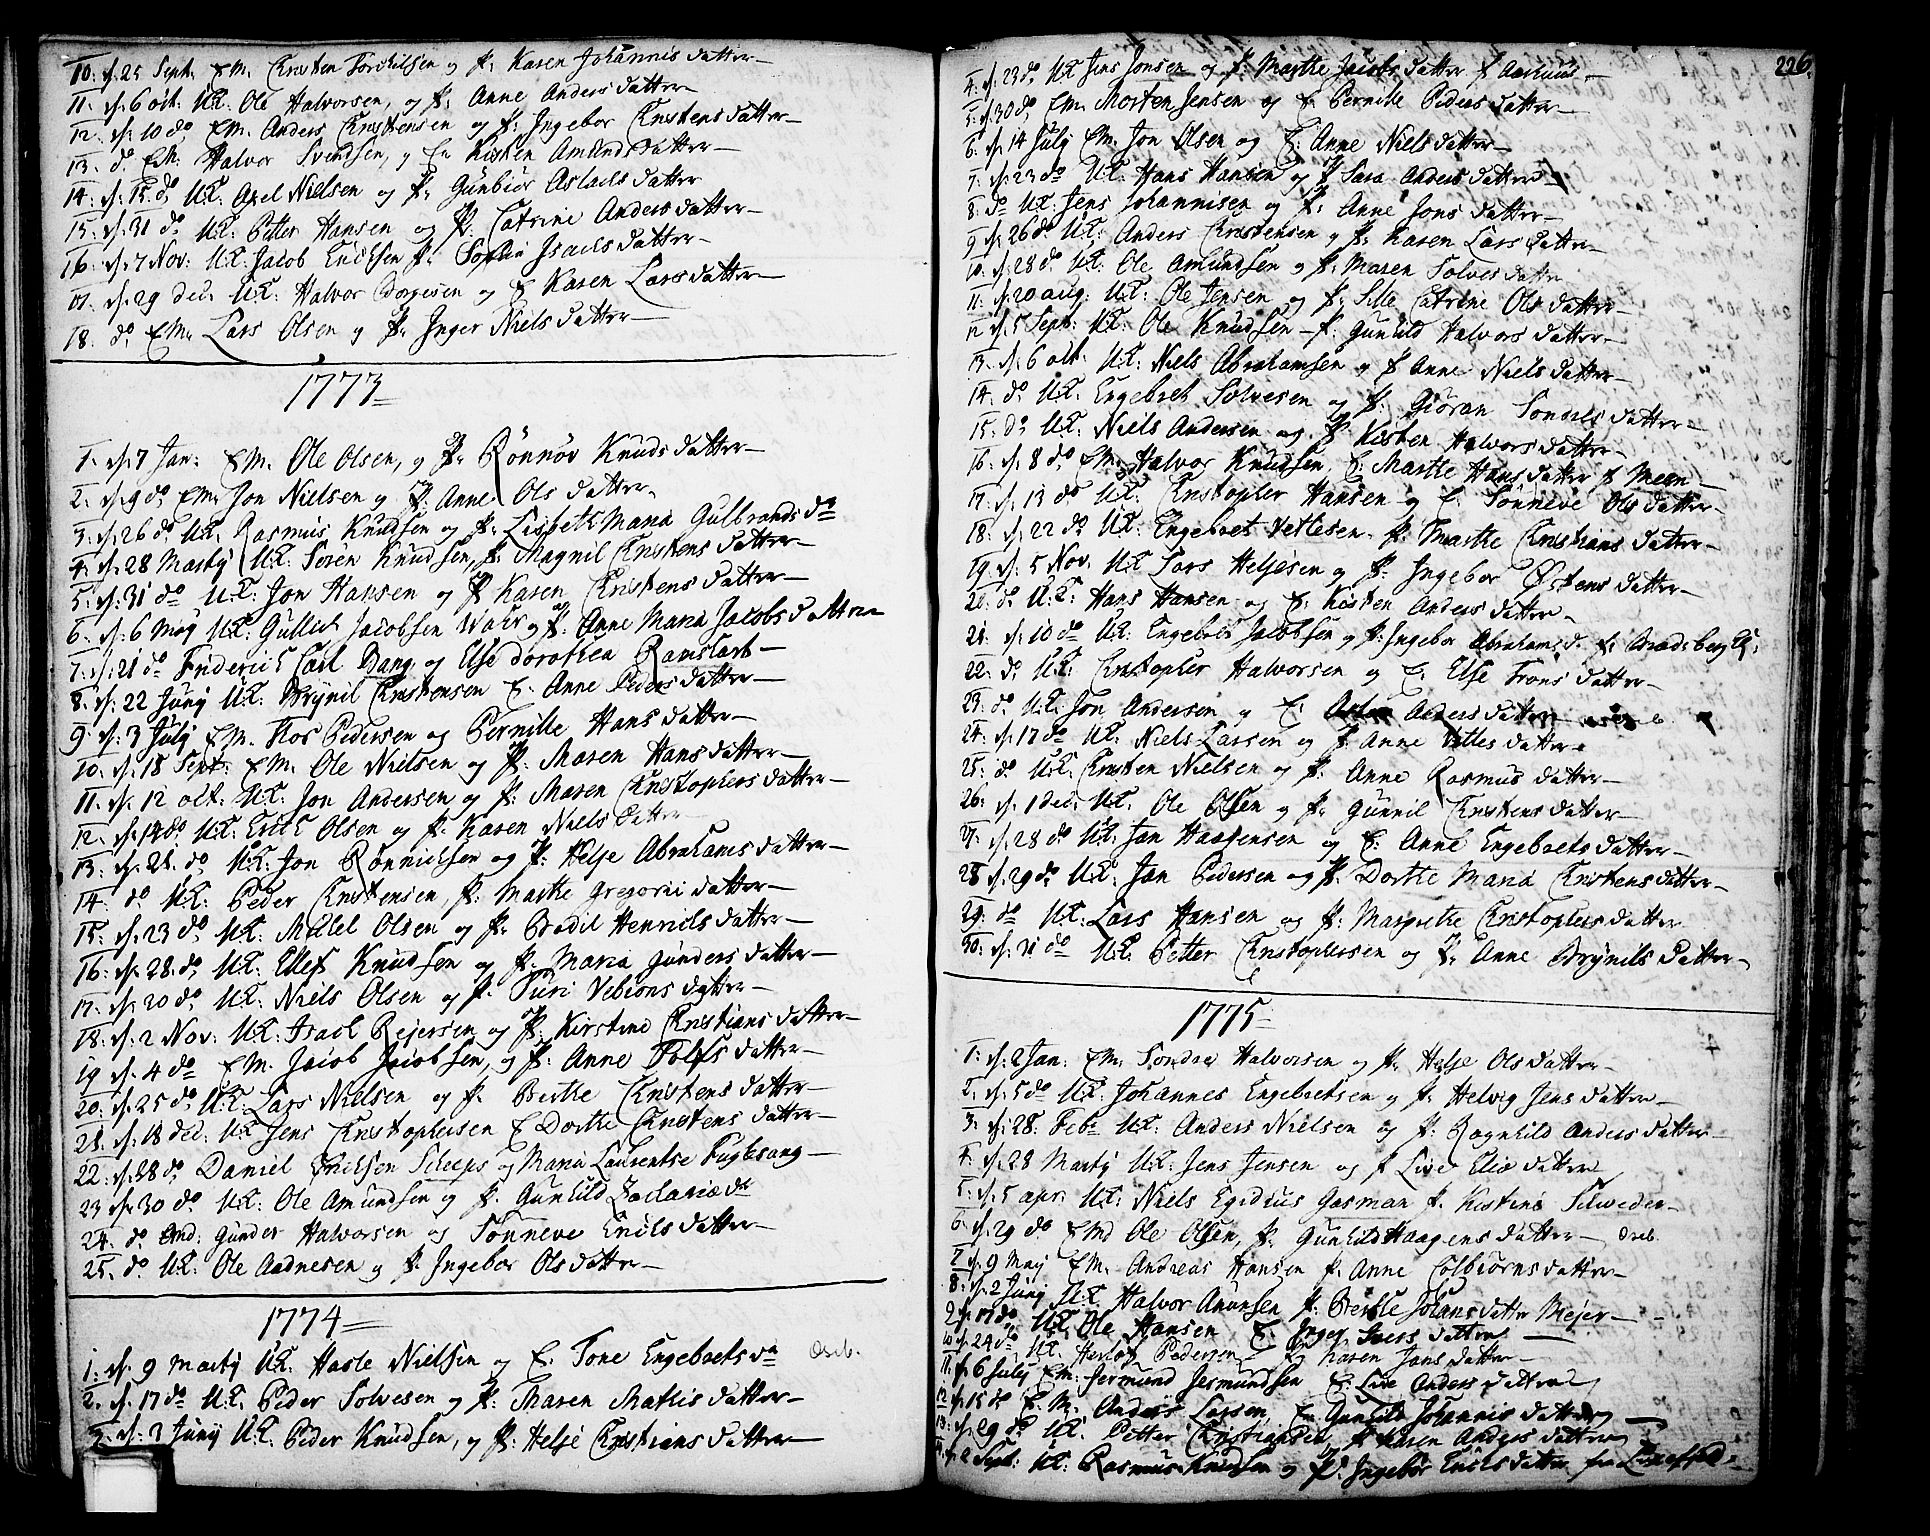 10. d. 25 Sept. EM. Christen Torchilsen og P: Karen Johannis datter
11. d. 6 Oct: UK: Ole Halvorsen, og P: Anne Anders datter
12. d. 10 do EM. Anders Christensen og P: Ingebor Christens datter
13. do EM. Halvor Svendsen, og En Kirsten Amunds datter
14. d. 15 do UK: Axel Nielsen og P: Gunbior Aslachs datter
15. d. 31 do UK: Petter Hansen og P: Catrine Anders datter
16. d. 7 Nov: UK: Jacob Erichsen P: Sophie Isachs datter
17. d. 29 Dec. UK: Halvor Borgesen og E Karen Lars datter
18. do EM. Lars Olsen og P: Inger Niels datter
1773
1. d. 7 Jan: EM. Ole Olsen, og P: Rönnöv Knuds datter
2. d. 9 do EM. Jon Nielsen og P. Anne Ols datter
3. d. 26 do UK. Rasmus Knudsen og P. Lisbeth Maria Gulbrands dr
4. d. 28 Martij UK: Sören Knudsen, P: Magnil Christens datter
5. d. 31 do UK: Jon Hansen og P Karen Christens datter
6. d. 6 Maij UK: Gullich Jacobsen Wahr og P: Anne Maria Jacobs datter
7. d. 21 do Friderich Carl Bang og Else Dorothea Ramslart
8. d. 22 Junij UK: Brynil Christensen E. Anne Peders datter
9. d. 3 Julij EM. Flos Pedersen og Pernille Hans datter
10. d. 18 Sept: EM. Ole Nielsen og P: Maren Hans datter
11. d. 12 Oct. UK: Jon Andersen og P: Maren Christophers datter
12. d. 14 do UK: Erich Olsen og P. Karen Niels datter
13. d. 21. do UK: Jon Rönnichsen og P: Helje Abrahams datter
14. do UK: Peder Christensen, P: Marthe Gregorii datter
15. d. 23 do UK: Michel Olsen og P: Bodil Henrichs datter
16. d. 28. do UK: Ellef Knudsen og P. Maria Gunders datter
17. d. 20 do UK: Niels Olsen og P. Turi Vebions datter
18. d. 2 Nov: UK: Isach Rejersen og P: Kirstine Christians datter
19 d. 4 do EM. Jacob Jacobsen, og P: Anne Tolfs datter
20. d. 25 do UK: Lars Nielsen og P. Berthe Christens datter
21. d. 18 Dec: UK Jens Christophersen E Dorthe Christens datter
22. d. 28 do Daniel Erichsen og Maria Laurentse Fuglesang
23 d. 30 do UK: Ole Amundsen og P. Gunhild Zachariæ dr
24. do EMd: Gunder Halvorsen og Sonneve Erichs datter
25. do UK: Ole Aadnesen og P. Ingebor Ols datter
1774
1. d. 9 Martij UK: Hasle Nielsen og E. Tone Engebrets dr
2. d. 17 do UK: Peder Solvesen og P: Maren Mathis datter
3. d. 2 Junij UK: Peder Knudsen, og P: Helje Christians datter
226.
4. d. 23 do UK Jens Jonsen og P. Marthe Jacobs datter
5. d. 30 do EM. Morten Jensen og E. Pernille Peders datter
6. d. 14 Julij EM. Jon Olsen og E. Anne Niels datter
7. d. 23 do UK: Hans Hansen og P Sara Anders datter
8. do UK: Jens Johannisen og P. Anne Jons datter
9 d. 26 do UK: Anders Christensen og P. Karen Lars datter
10. d. 28 do UK: Ole Amundsen og P: Maren Solves datter
11. d. 20 Aug: UK: Ole Jensen og P. Sille Catrine Ols datter
12 d. 5 Sept: UK: Ole Knudsen P. Gunhild Halvors datter
13. d. 6 Oct UK: Niels Abrahamsen og P Anne Niels datter
14. do UK: Engebret Solvesen og P: Giöran datter
15. do UK: Niels Andersen og P Kirsten Halvors datter
16. d. 8 do EM. Halvor Knudsen. E. Marthe Hans datter
17. d. 13 do UK: Christopher Hansen og E Sonneve Ols datter
18. d. 22 do UK: Engebret Vetlesen. P: Marthe Christians datter
19. d. 5 Nov. UK Lars Heljesen og P: Ingebor Östens datter
20. do UK: Hans Hansen og E. Kirsten Anders datter
21. d. 10 do UK: Engebret Jacobsen og P. Ingebor Abrahams d.
22. do UK: Christopher Halvorsen og E. Else Trons datter
23. do UK: Jon Andersen og E. Anders datter
24. d. 17 do UK: Niels Larsen og P. Anne Vetles datter
25. do UK: Christen Nielsen og P: Anne Rasmus datter
26. d. 1 Dec: UK. Ole Olsen og P: Gunnil Christens datter
27. d. 28 do UK: Jan Haagensen og E. Anne Engebrets datter
28 d. 29 do UK: Jan Pedersen og P. Dorthe Maria Christens datter
29. do UK: Lars Hansen og P: Margrethe Christophers datter
30. d. 31 do UK: Petter Christophersen og P. Anne Brynils datter
1775
1. d. 2 Jan: EM. Sondre Halvorsen og P. Helje Ols datter
2. d. 5 do UK: Johannes Engebretsen og P. Helvig Jens datter
3. d. 28. Febr UK: Anders Nielsen og P. Ragnhild Anders datter
4. d. 28 Martij UK: Jens Jensen og P Live Eliæ datter
5. d. 5 Apr: UK: Niels Egidius Gasman P. Kirstine
6. d. 29 do EMd Ole Olsen, P. Gunhild Haagens datter
7. d. 9 Maij EM. Andreas Hansen P. Anne Colbiörns datter
8. d. 2 Junij UK Halvor Amunsen P. Berthe Johans datter Mejer
9 d. 17 do UK: Ole Hansen E. Inger Ivers datter
10 d. 24 do UK Herlof Pedersen Karen Jans datter
11. d. 6 Julij EM. Jermund Jermundsen E. Live Anders datter
12 d. 15 do E.M. Anders Larsen E. Gunhild Johannis datter
13. d. 29 do UK: Petter Christiansen P Karen Anders datter
d. 2 Sept: UK: Rasmus Knudsen og P: Ingebor Erichs datter